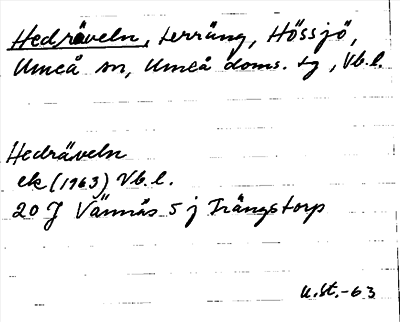 Hedräveln, terräng, Hössjö,
Umeå sn, Umeå doms. tg, Vb.l.
Hedräveln
ek (1963) Vb.l.
20 J Vännäs 5 j Trängstorp
U.St.-63